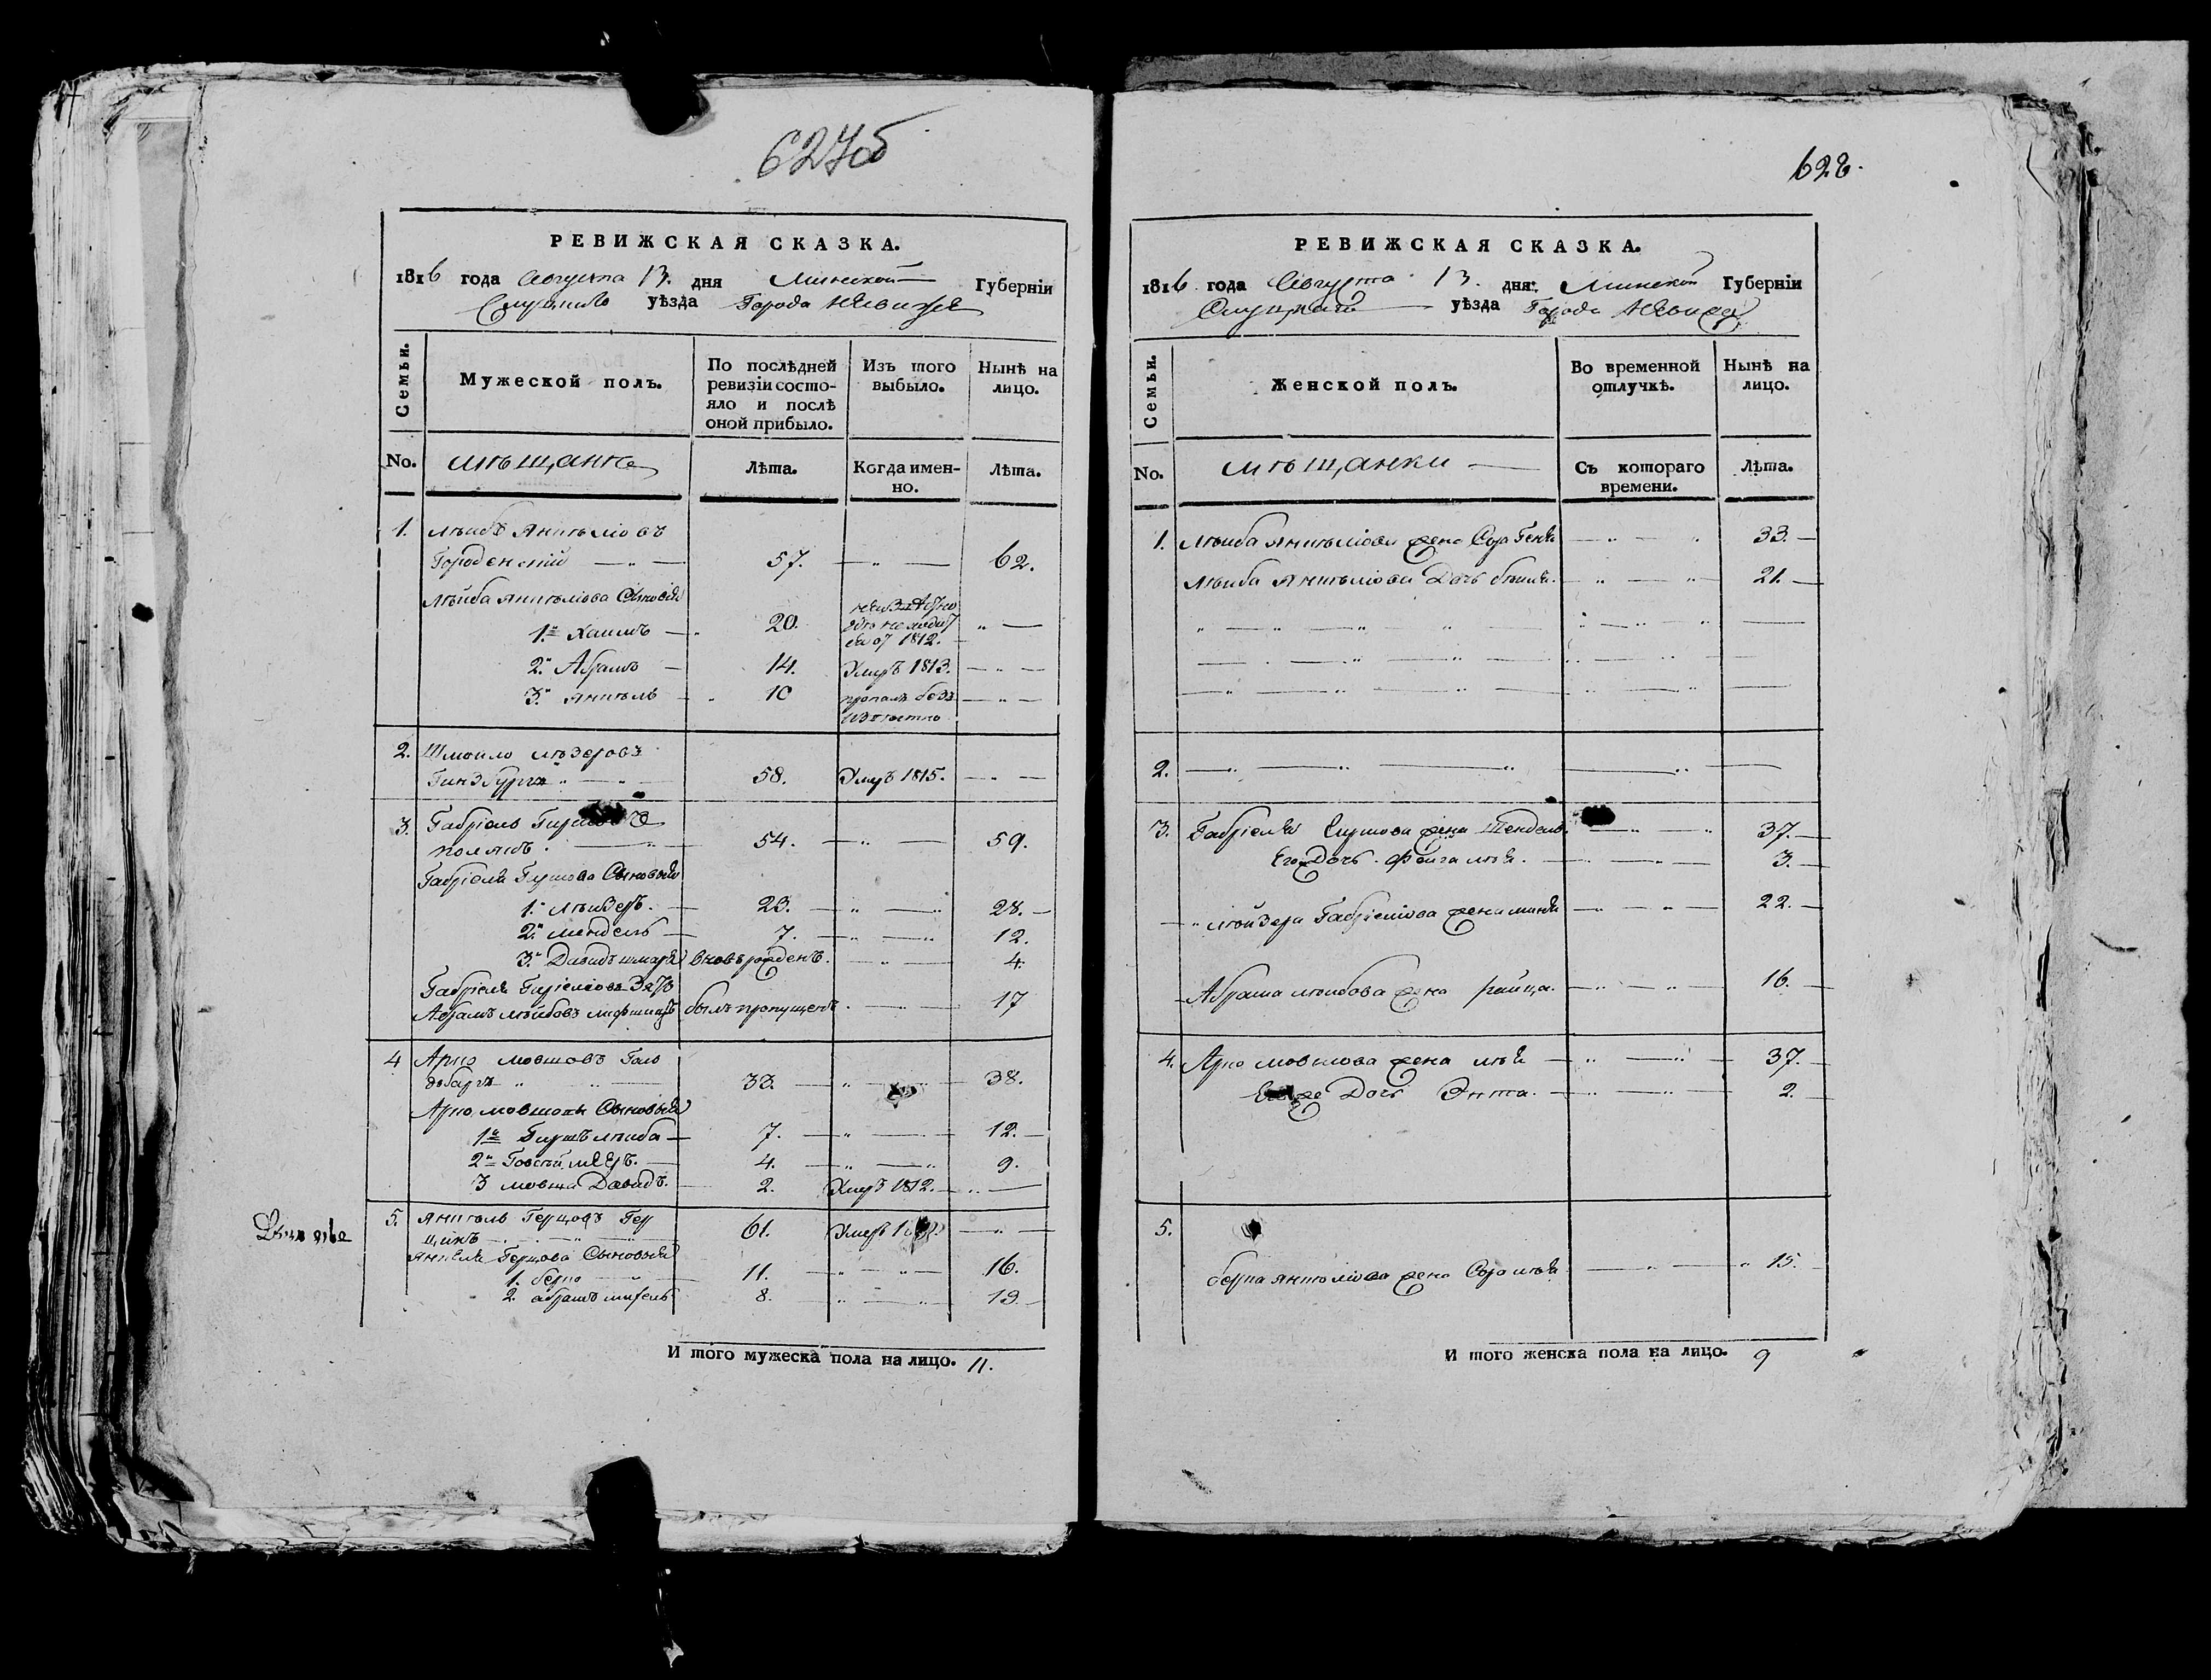 627об
РЕВИЖСКАЯ СКАЗКА.
1816 года Августа 13. дня Минской Губерніи
Слуцкаго уѣзда Города Нѣсвижа
Семьи.
Мужеской полъ.
По послѣдней ревизіи состояло и послѣ оной прибыло.
Изъ того выбыло.
Нынѣ на лицо.
No. мѣщане
Лѣта.
Когда именно.
Лѣта.
1. Лѣйба Янкѣліовъ
Городенскій 57. 62.
Лѣйба Янкѣліова Сыновья
1.й Хаимъ 20. неизвѣстно где находит ся от 1812.
2.й Абрамъ 14. Умеръ 1813.
3.й Янкѣль 10 пропалъ безъ извѣстно
2. Шмойло Лѣзеровъ
Гинзбургъ 58. Умеръ 1815.
3. Габріель Гиршовъ
Полякъ 54. 59.
Габріеля Гиршова Сыновья
1.й Лѣйзеръ 23. 28.
2.й Мендель 7. 12.
3.й Давидъ вновърожденъ. 4.
Габріеля Зять
Абрамъ Лѣйбовъ Лифшицъ былъ пропущенъ. 17
4 Арно Мовшовъ Голь
добергъ 33. 38.
Арно Мовшовы Сыновья
1й Гиршъ Лѣйба 7. 12.
2й 4. 9.
3 Мовша Давидъ. 2. Умеръ 1812.
5. Янкѣль Герцовъ Гер
цикъ 61. Умеръ
Янкеля Герцова Сыновья
1. Берко 11. 16.
2. Абрамъ 8. 13.
И того мужеска пола на лицо. 11.
628.
РЕВИЖСКАЯ СКАЗКА.
1816 года Августа 13. дня Минской Губерніи
Слуцкаго уѣзда Города Нѣсвижа
Семьи.
Женской полъ.
Во временной отлучкѣ.
Нынѣ на лицо.
No. мѣщанки
Съ котораго времени.
Лѣта.
1. Лѣйба Янкѣліова жена Сора Геня 33.
Лѣйба Янкѣліова Дочь 21.
2.
3. Габріеля Гиршова жена Шендель 37.
Его Дочь Фейга Лѣя. 3.
Лѣйзера Габріеліова жена Миня 22.
Абрама Лѣйбова жена Райца. 16.
4. Арно Мовшова жена Лѣя 37.
Его же Дочь Энта. 2.
5.
Берка Янкѣліова жена Сора Лѣя 15.
И того женска пола на лицо. 9